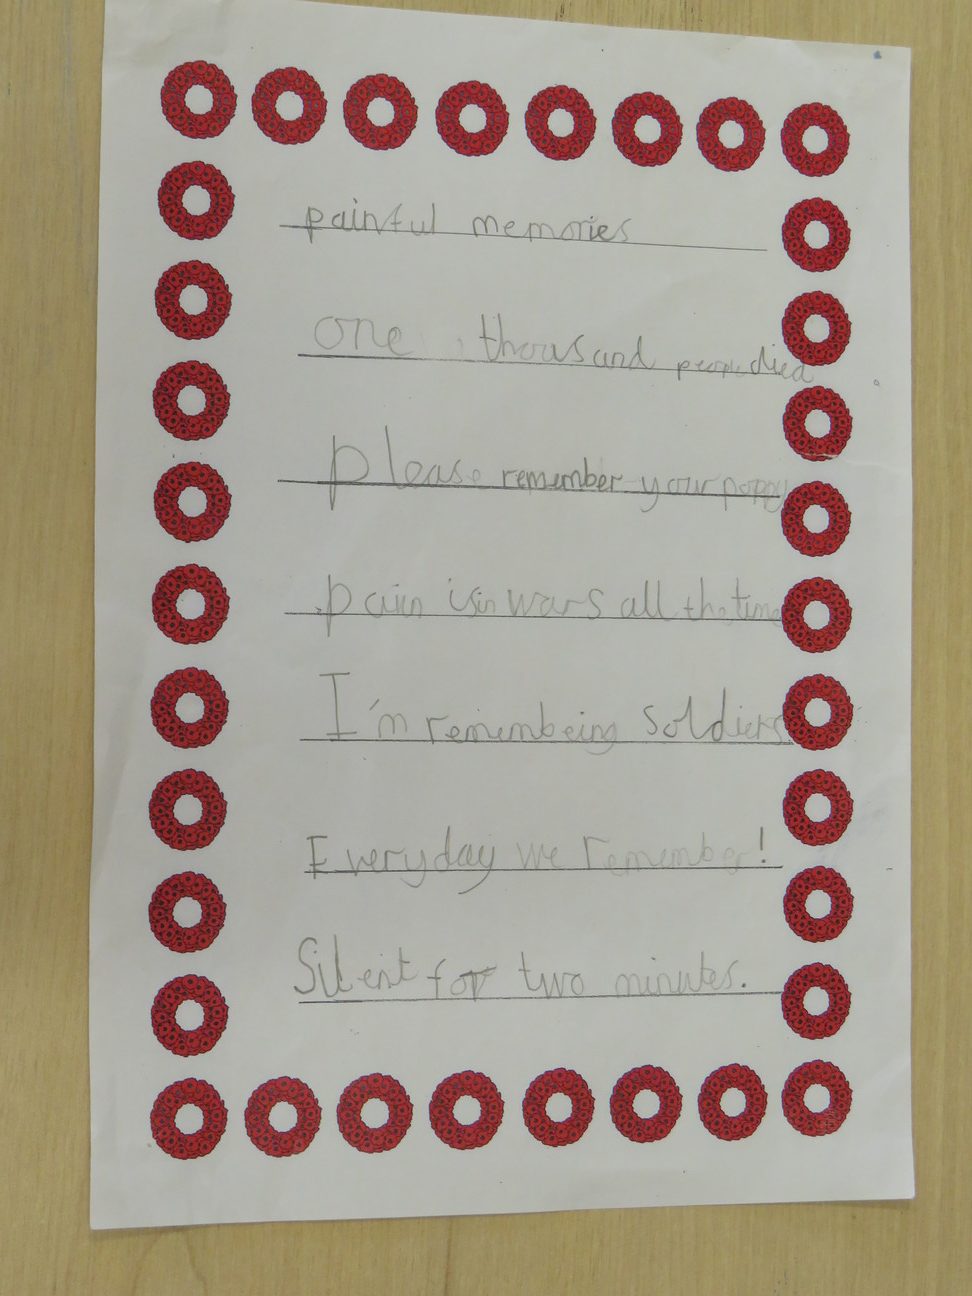 painful memories
one thousand people died
please remember your poppy
pain is in wars all the time
I'm remembeing soldiers
Everyday we remember!
Silent for two minutes.